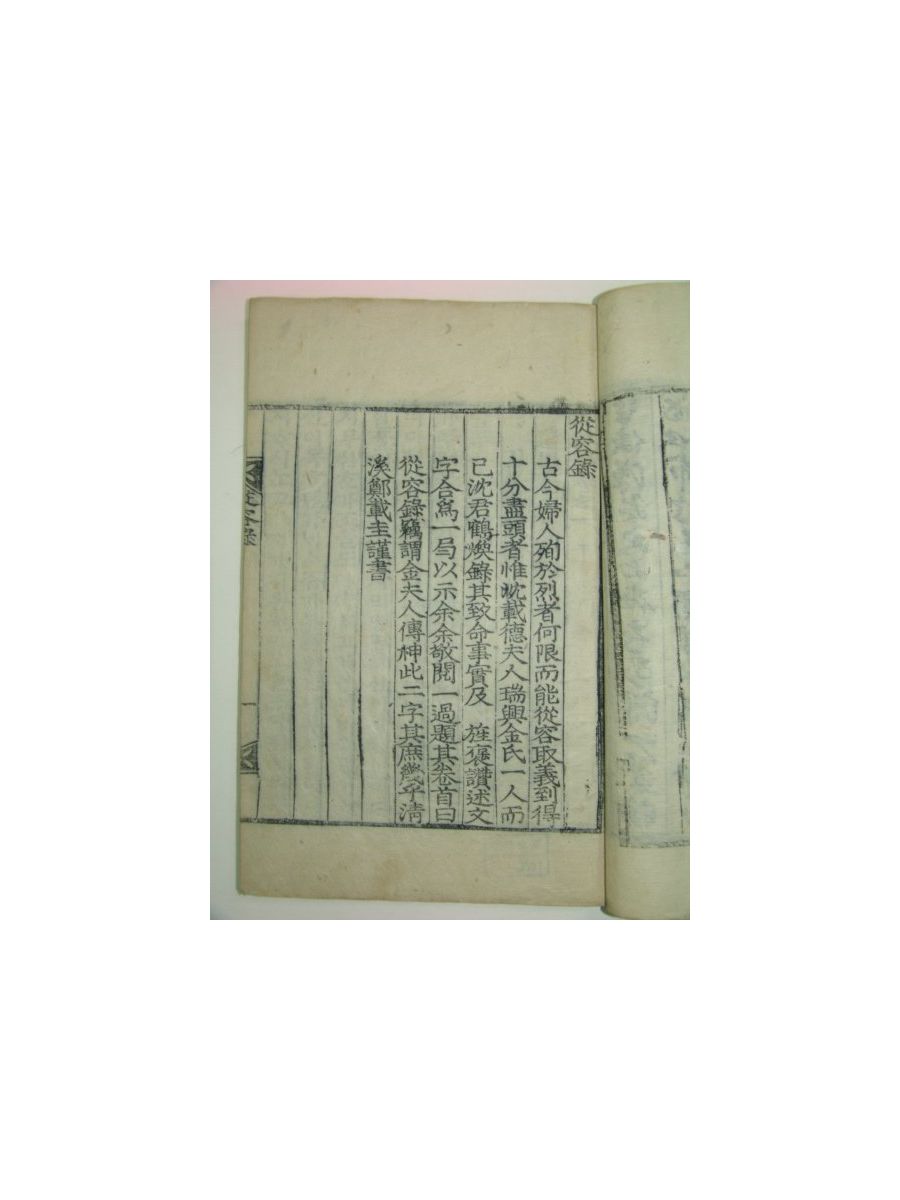 從容錄
古今婦人殉於烈者何限而能從容取義到得
十分盡頭者惟沈載德夫人瑞興金氏一人而
已沈君鶴煥錄其致命事實及　旌褒讚述文
字合爲一局以示余余敬閱一過題其卷首曰
從容錄竊謂金夫人傳神此二字其庶幾乎淸
溪鄭載圭謹書
從容錄
一